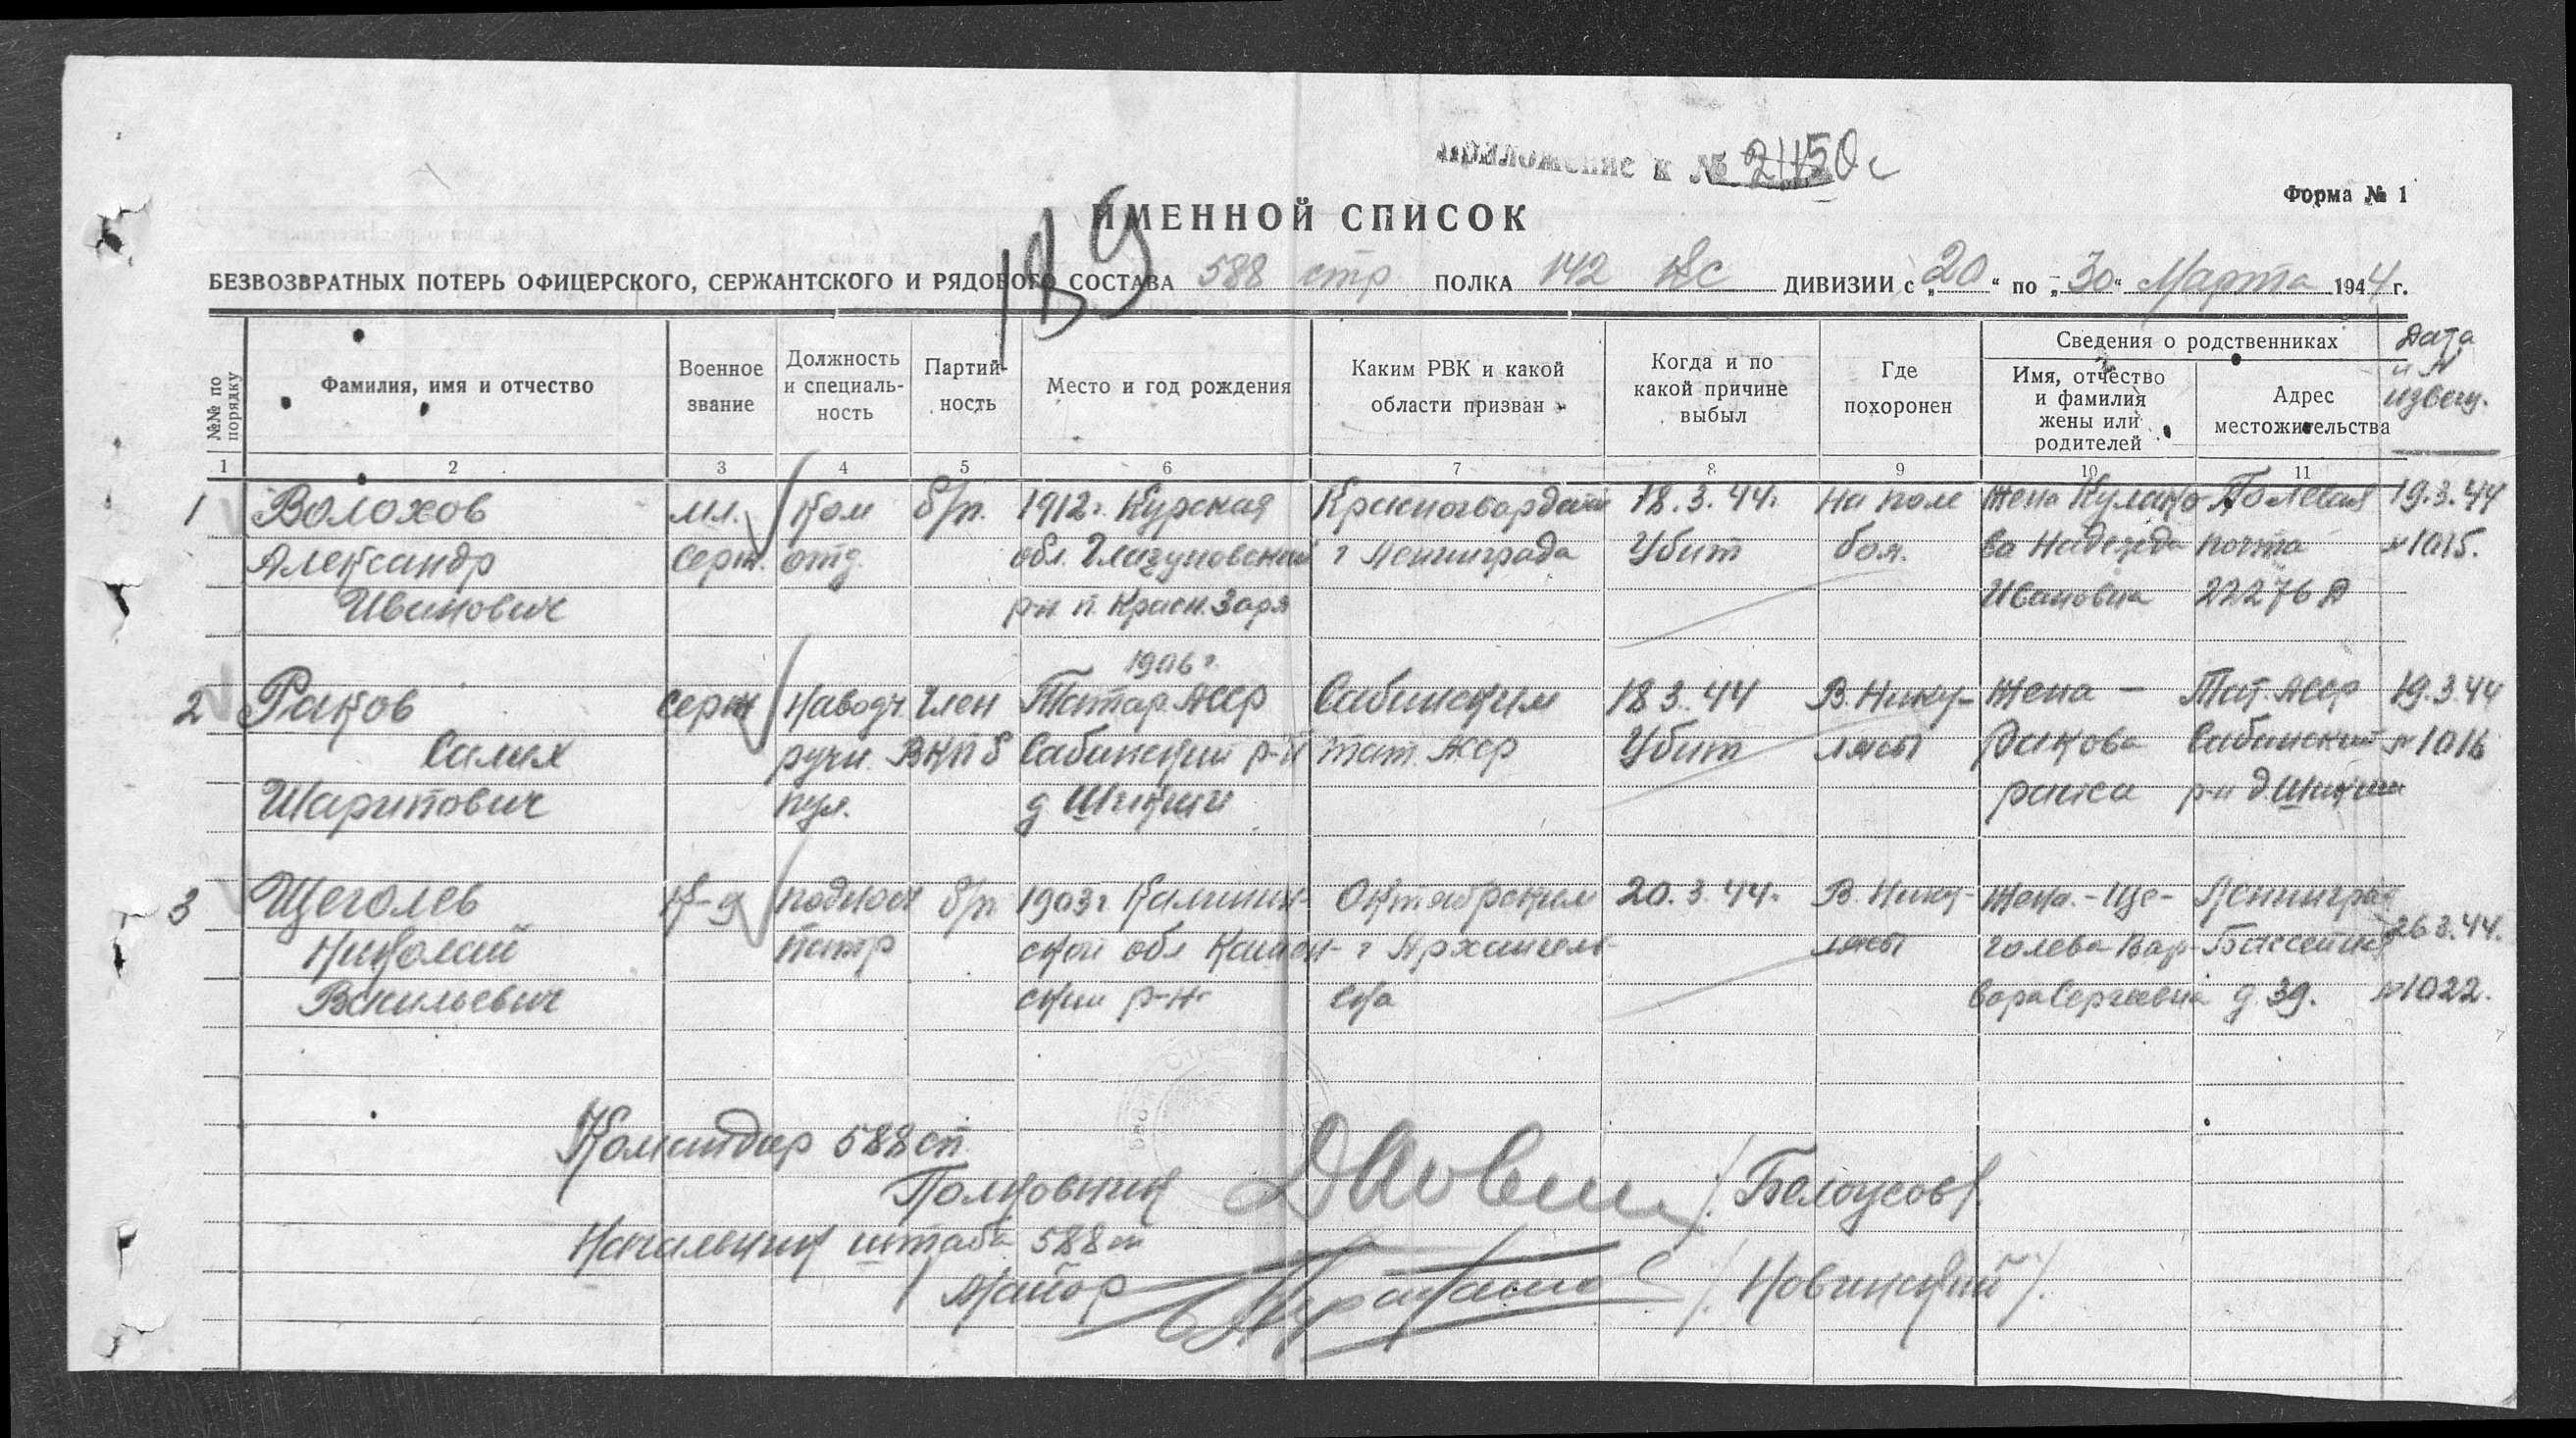 приложение к № 2450с
Форма № 1
ИМЕННОЙ СПИСОК
189
БЕЗВОЗВРАТНЫХ ПОТЕРЬ ОФИЦЕРСКОГО, СЕРЖАНТСКОГО И РЯДОВОГО СОСТАВА 588 стр ПОЛКА 142 ДИВИЗИИ с „20“ по „30“ Марта 1944 г.
№№ по порядку
Фамилия, имя и отчество
Военное звание
Должность и специаль-ность
Партий-ность
Место и год рождения
Каким РВК и какой области призван
Когда и по какой причине выбыл
Где похоронен
Сведения о родственниках
Имя, отчество и фамилия жены или родителей
Адрес местожительства
Дата и № извещ.
1 2 3 4 5 6 7 8 9 10 11
1 Волохов мл. Ком б/п. 1912г. Курская Красногвардейск 18.3.44. на поле жена Кулако- Полевая 19.3.44
Александр серж. отд. обл. Глазуновский г Ленинграда Убит боя. ва Надежда почта №1015.
Иванович р-н п. Красн. Заря Ивановна 22276
1906г.
2 Раков серж Наводч. Член Татар. АССР Сабинским 18 3.44 В. Нику- Жена – Тат. АССР 19.3.44
Салих ручн. ВКПб Сабинский р-н Тат. АССР Убит лясы Ракова Сабинский №1016
Шарипович пул. д Шикши раиса р-н д. Шикши
3 Щеголев К-ц подмоч б/п 1903г. Калинин- Октябрьским 20.3.44. В. Нику- Жена.-Ще- Ленинград
Николай ской обл Кашин- г Архангель- лясы голева Вар- Бассейная 26 3.44.
Васильевич ский р-н- ска вара Сергеевна д. 39. №1022.
Командир 588 сп
Полковник /Белоусов/.
Начальник штаба 588 сп
Майор /Новинский/.